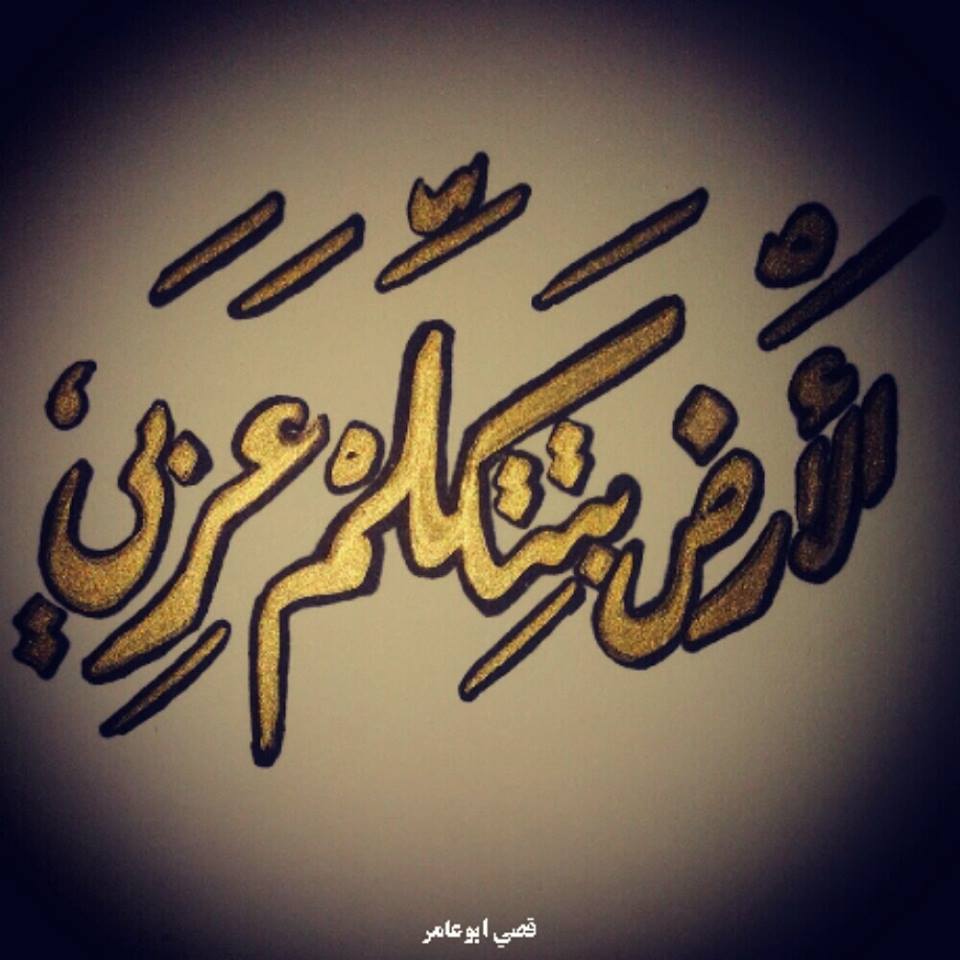 الأرض بتتكلّم عربي
قصي ابوعامر